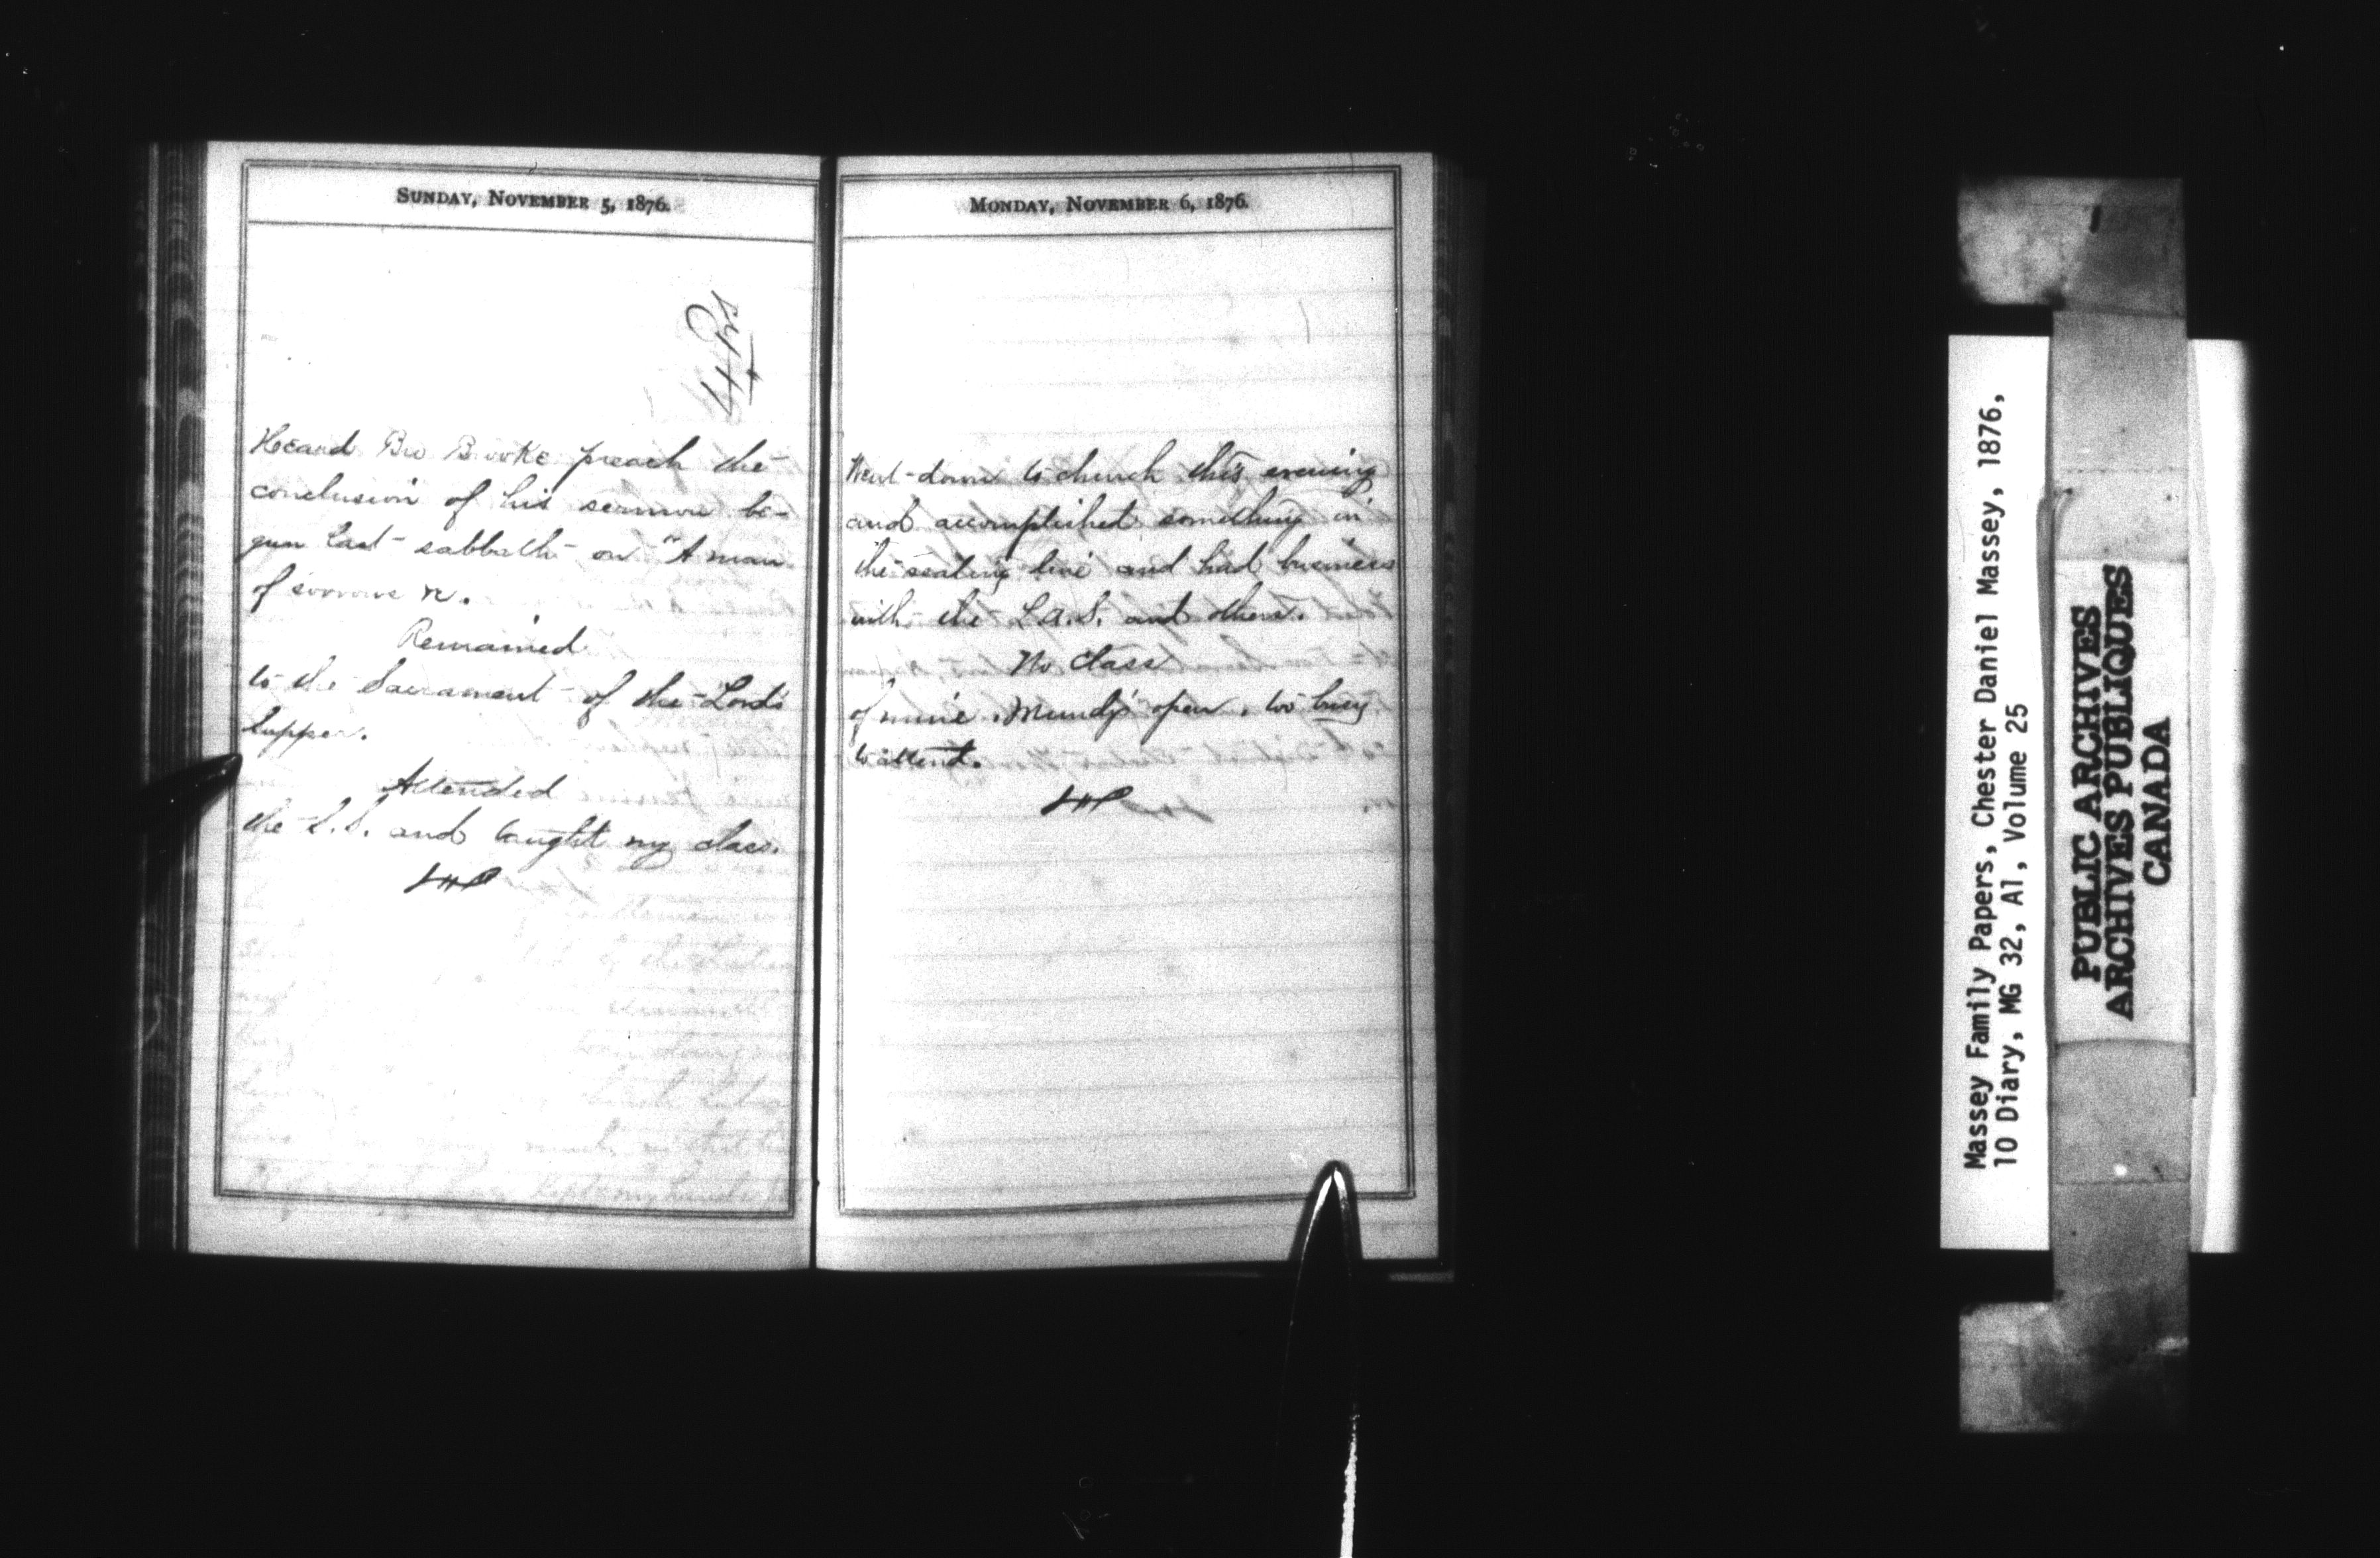 SUNDAY, NOVEMBER 5, 1876.
Heard Bro Brooke preach the
conclusion of his sermon be-
gun last sabbath on "A man
of sorrows &c.
Remained
to the Sacrament of the Lord's
Supper.
Attended
the S.S. and taught my class.
MONDAY, NOVEMBER 6, 1876.
Went down to church this evening
and accomplished something in
the seating line and had business
with the L.A.S. and others.
No class
of mine. Mundy's open, too busy
to attend.
Massey Family Papers, Chester Daniel Massey, 1876,
10 Diary, MG 32, A1, Volume 25
PUBLIC ARCHIVES
ARCHIVES PUBLIQUES
CANADA